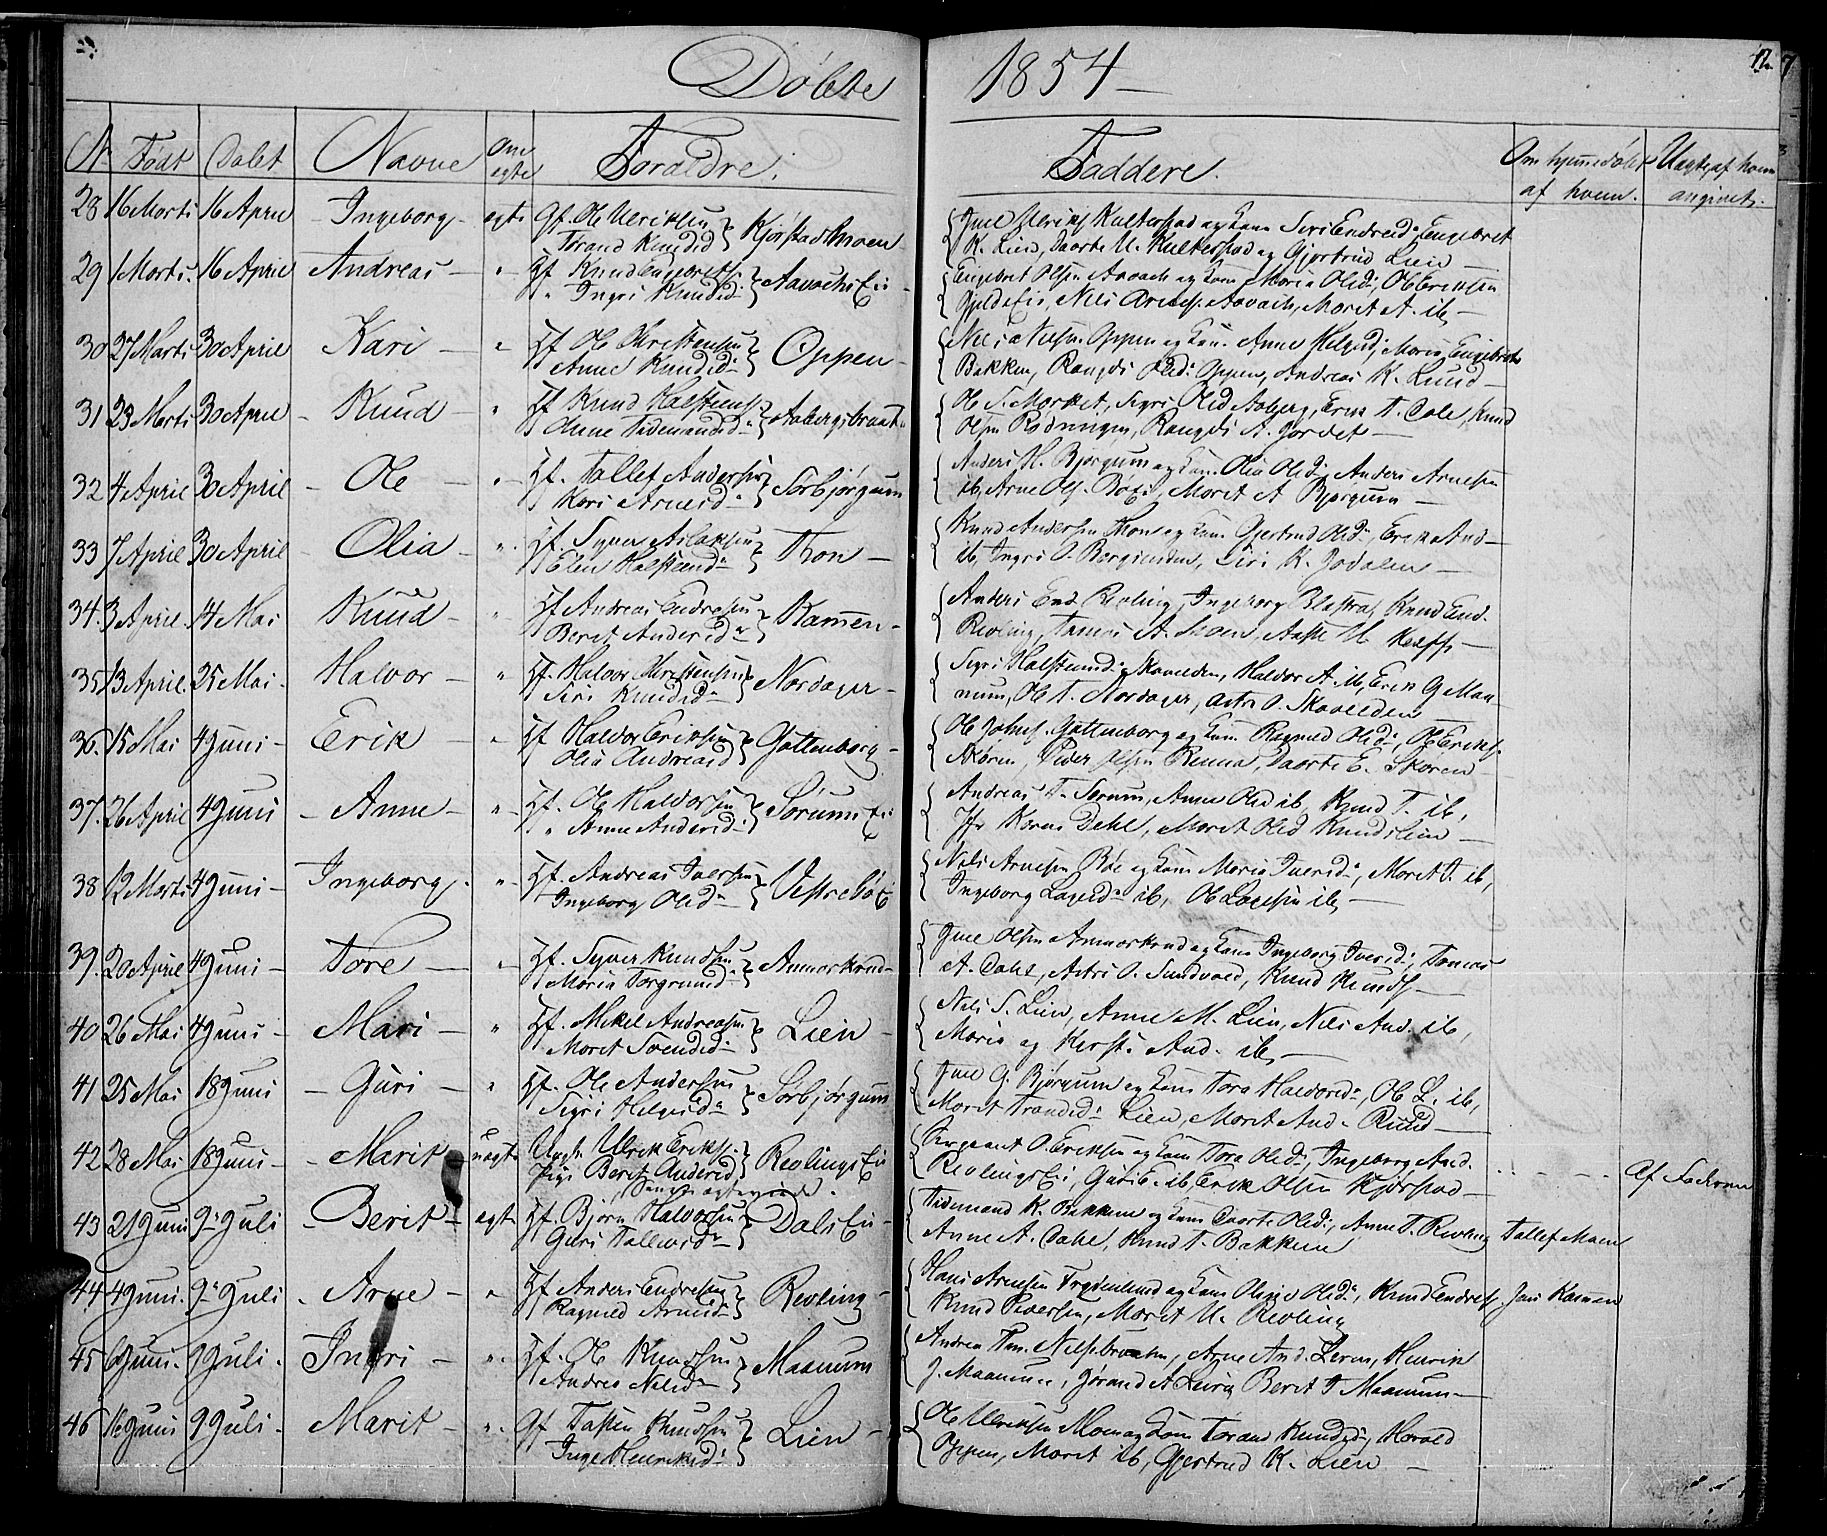 Døbte 1854
No Født Døbt Navne Om egte Foraldre. Faddere. Om hjemedøbt af hvem. Uegte af hvem angivet.
28 16 Marts 16 April Ingeborg egte Gf. Ole Ulriksen Torand Knudsd Kjørstadmoen
Juel Ulriks Kultestad og kone Siri Endresd Engebret
K. Lien, Daarte U. Kultestad og Gjertrud Lien
29 1 Marts 16 April Andreas " Gf Knud Engebrets. Ingri Knudsd Aavachs Ei
Engebret Olsen Aavach og kone Maria Olsd, Ole Eriksen
Nils Aavach, Marit A. ib
30 27 Marts 30 April Kari " Hf Ole Christensen Anne Knudsd Oppen
Nils Nilsen Oppen og kone Anne Helgesd, Maria Engebrets
Bakken, Rangdi Olsd Oppen, Andreas K. Lund
31 23 Marts 30 April Knud " Hf Knud Halstens Anne Tidemandsd Aabergsbraat
Ole S. Morket, Sigri Olsd Aaberg, Erik T. Dale, Knud
Olsen Rodningen, Rangdi A. Jordet
32 4 April 30 April Ole " Hf. Tollef Andersen Kari Arnesd Sørbjørgum
Anders H. Bjørgum og kone Olia Olsd Anders Arnesen
ib, Arne Ols. Bøe, Marit A Bjørgum
33 7 April 30 April Olia " Hf. Syver Aslaksen Elen Halstensd Thon
Knud Andersen Thon og kone Gjertrud Olsd, Erik And
ib, Ingri O. Siri K. Jodalen
34. 3 April. 14 Mai Knud " Hf Andreas Endresen Berit Andersd Kamen
Anders End Revling, Ingeborg Knud End.
Revling, Tomas A. Moen
35 13 April 25 Mai Halvor " Hf. Halvor Christensen Siri Knudsd Nordager
Sigri Halstensd Skavelden, Haldor A. ib, Erik G Maa
num, Ole T. Nordager, Astri O. Skavelden
36. 15 Mai 4 Juni Erik " Hf Haldor Eriksen Olia Andreasd Gottenborg
Ole Johns. Gottenborg og kone Ragnild Olsd, Ole Eriks.
Skøren, Peder Olsen Renna, Daarte E. Skøren
37. 26 April 4 Juni Anne " Hf. Ole Haldorsen Anne Andersd Sørums Ei
Andreas T. Sørum, Anne Olsd ib Knud T. ib,
Jfr Karen Dehl, Marit Olsd Knudslien
38 12 Marts 4 Juni Ingeborg. " Hf. Andreas Iversen Ingeborg Olsd Vestrebøe
Nils Arnesen Bøe og kone Maria Iversd, Marit I. ib,
Ingeborg Larsd ib, Ole Larsen ib
39. 20 April 4 Juni Tore " Hf. Syver Knudsen Maria Torgrimsd Anmarkrud
Juel Olsen Anmarkrud og kone Ingeborg Iversd, Tomas
A. Dahl, Astri O. Sundvold, Knud Knuds.
40 26 Mai 4 Juni Mari " Hf. Mikel Andreasen Marit Svendsd Lien
Nils S. Lien, Anne M. Lien, Nils And. ib,
Maria og Kersti And. ib
41 25 Mai 18 Juni Guri " Hf. Ole Andersen Sigri Helgesd Sørbjørgum
Juel G. Bjørgum og kone Tora Haldorsd, Ole L. ib,
Marit Trondsd Lien, Marit And. Ruud
42 28 Mai 18 Juni Marit uegte Ungk. Ulrik Eriks. Pige Berit Andersd Revlings Ei
Sergeant O. Eriksen og kone Tora Olsd, Ingeborg And.
Revlings Ei, Guri E. ib, Erik Olsen Kjørstad
Af Faderen
43 21 Juni 9 Juli Berit egte Hf. Bjørn Halvorsen Guri Tollevsd Dals Ei
Tidemand K. Bakken og kone Daarte Olsd, Anne T. Revling Tollef Moen
Anne A. Dahl, Knud T. Bakken
44 4 Juni. 9 Juli Arne " Hf Anders Endresen Ragnild Arnesd Revling
Hans Arnesen og kone Olsd, Knud Endres, Jens Kamen
Knud Pedersen, Marit U. Revling
45 6 Juni. 9 Juli. Ingri " Hf. Ole Knudsen Andrea Nilsd Maanum
Andrea Arne And. Leren, Henrik
J. Maanum, Jørand A Berit J Maanum
46 16 Juni 9 Juli. Marit " Gf Tosten Knudsen Inge Henriksd Lien
Ole Ulriksen Moen og kone Toran Knudsd, Harald
Oppen, Marit ib, Gjertrud K. Lien